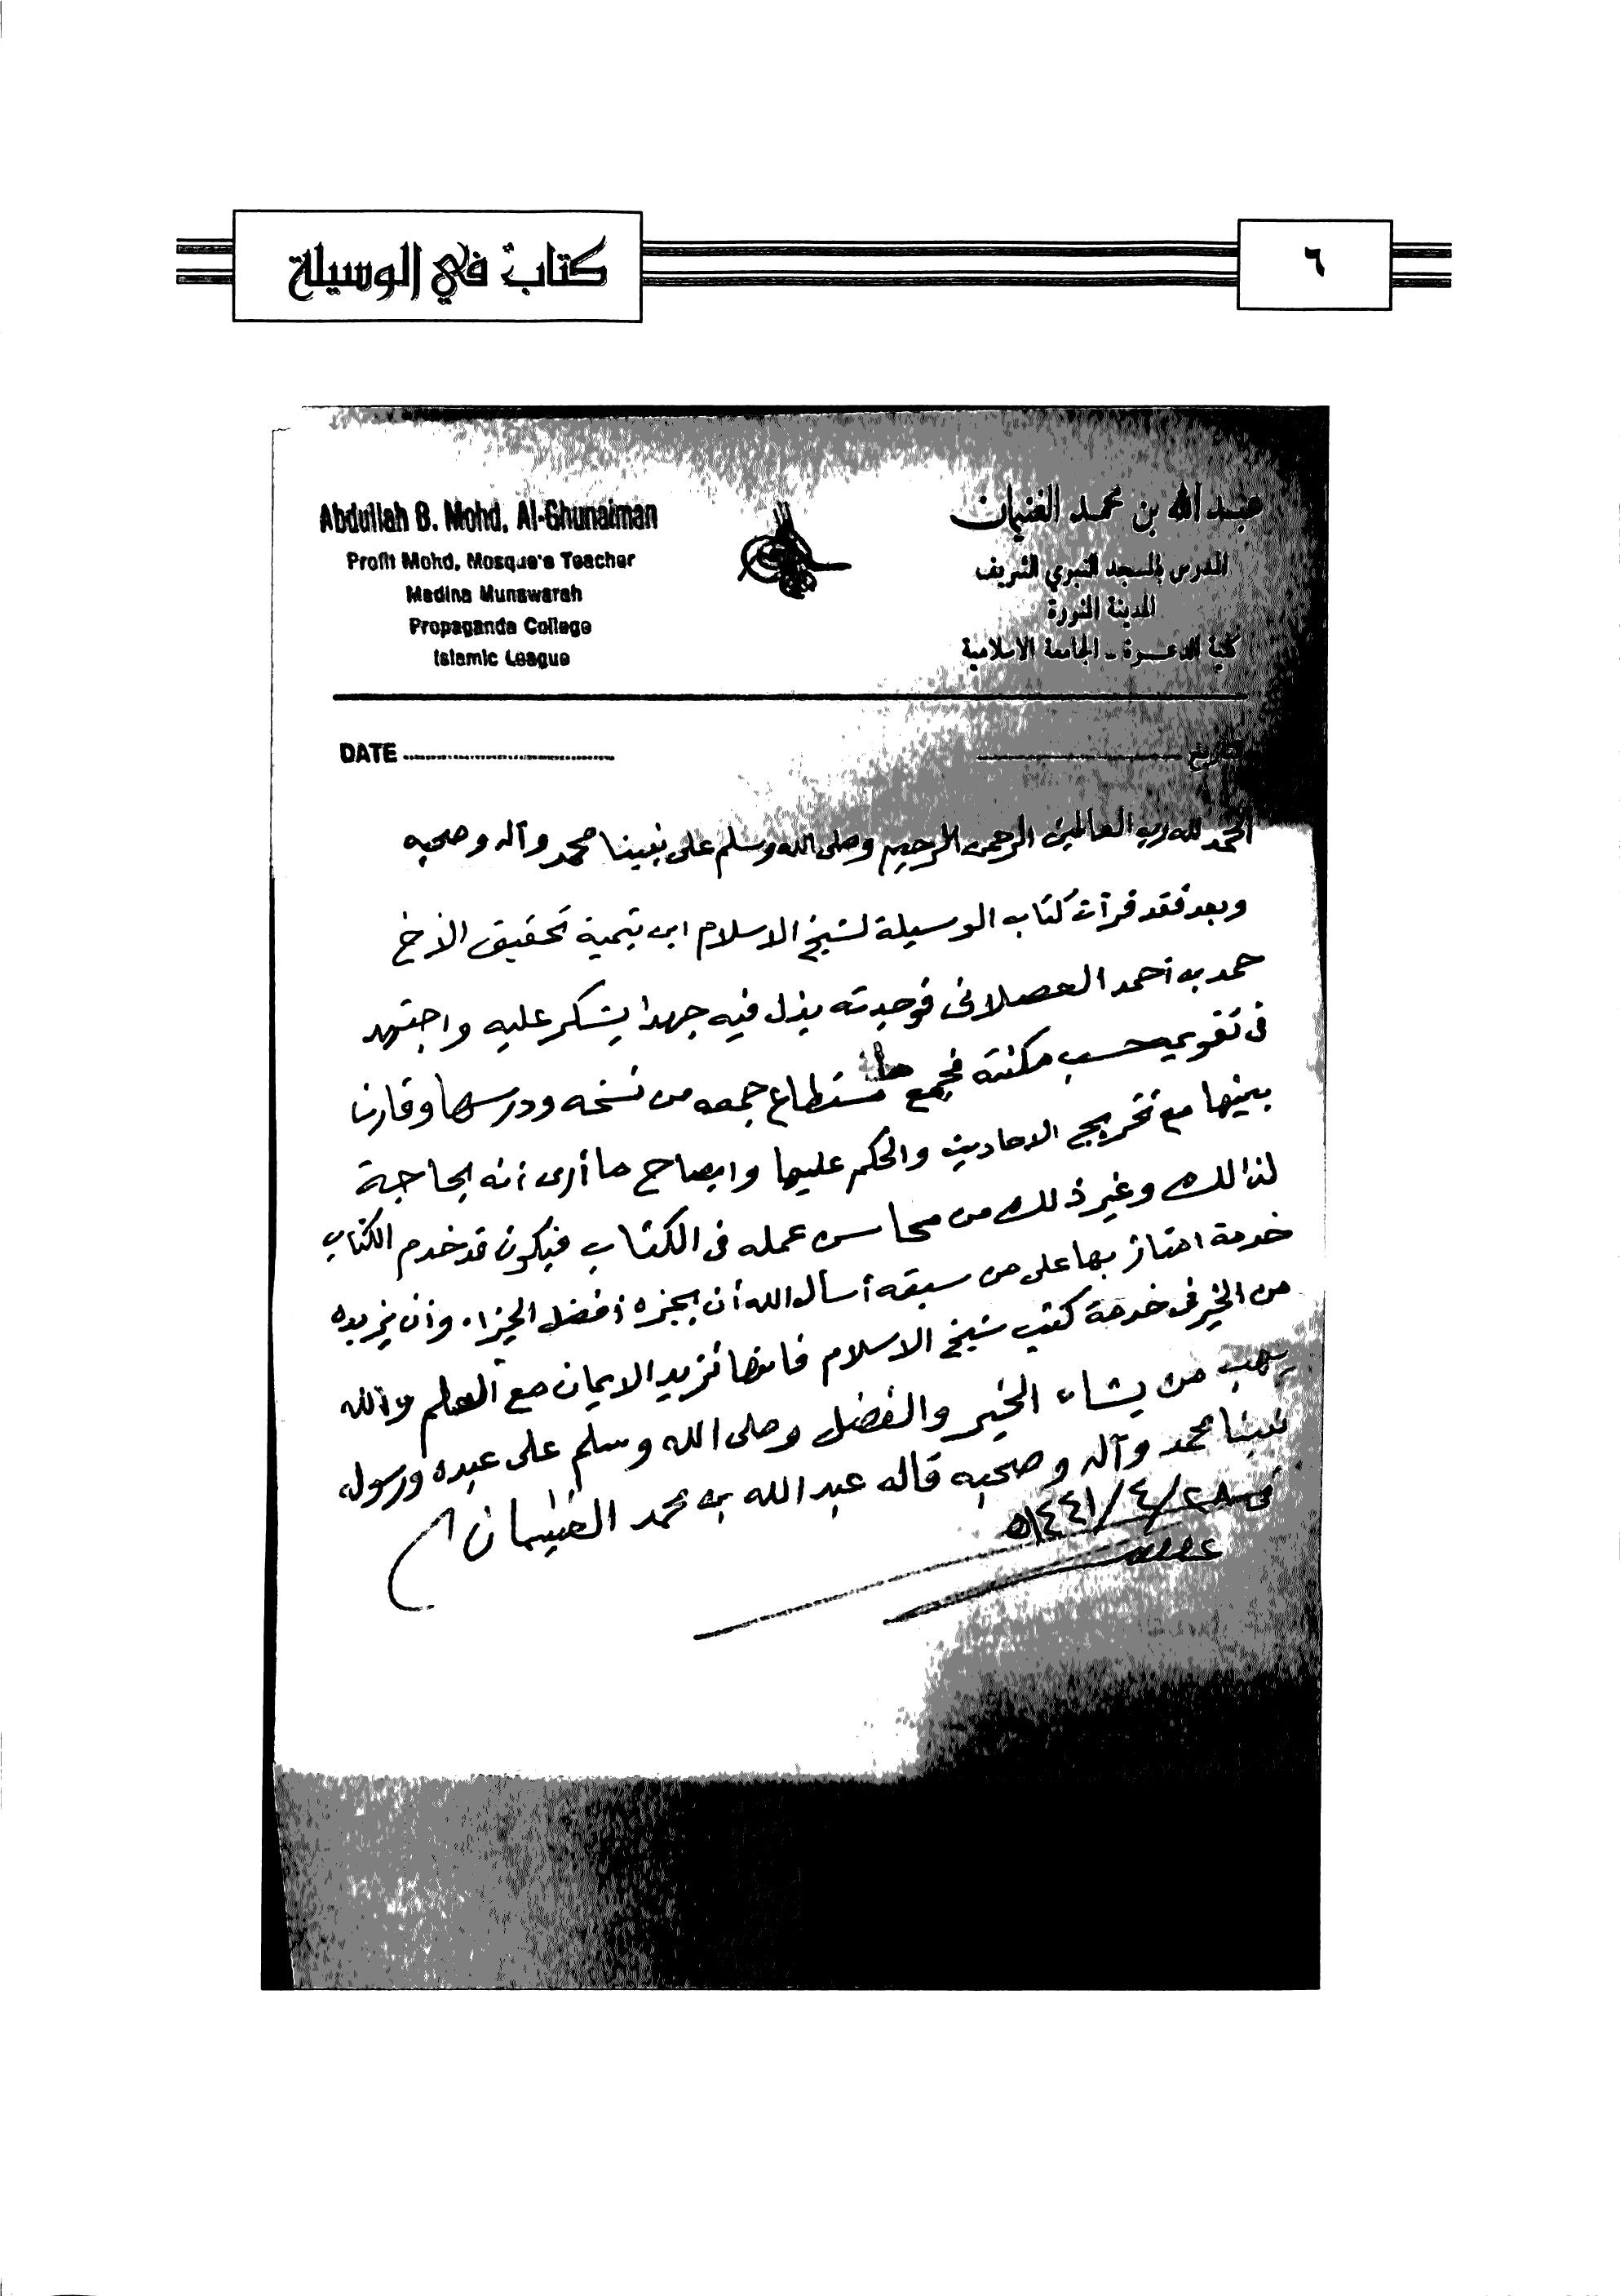 ٦
كتاب في الوسيلة
عبد الله بن محمد الغنيمان
المدرس بالمسجد النبوي الشريف
المدينة المنورة
كلية الدعوة - الجامعة الاسلامية
Abdullah B. Mohd. Al-Ghunaiman
Profit Mohd. Mosque's Teacher
Madina Munawarah
Propaganda College
Islamic League
التاريخ
DATE
الحمد لله رب العالمين الرحمن الرحيم وصلى الله وسلم على نبينا محمد وآله وصحبه
وبعد فقد قرأت كتاب الوسيلة لشيخ الاسلام ابن تيمية تحقيق الأخ
حمد بن أحمد العصلانى فوجدته بذل فيه جهدا يشكر عليه واجتهد
فى تقويمه حسب مكنته فجمع ما استطاع جمعه من نسخه ودرسها وقارن
بينها مع تخريج الاحاديث والحكم عليها وايضاح ما أرى أنه بحاجة
لذالك وغير ذلك من محاسن عمله فى الكتاب فيكون قد خدم الكتاب
خدمة امتاز بها على من سبقه أسأل الله أن يجزه أفضل الجزاء وأن يزيده
من الخير فى خدمة كتب شيخ الاسلام فانها تزيد الايمان مع العلم والله
يهب من يشاء الخير والفضل وصلى الله وسلم على عبده ورسوله
نبينا محمد وآله وصحبه قاله عبد الله بن محمد الغنيمان
فى ٢٨/٤/١٤٤١ه